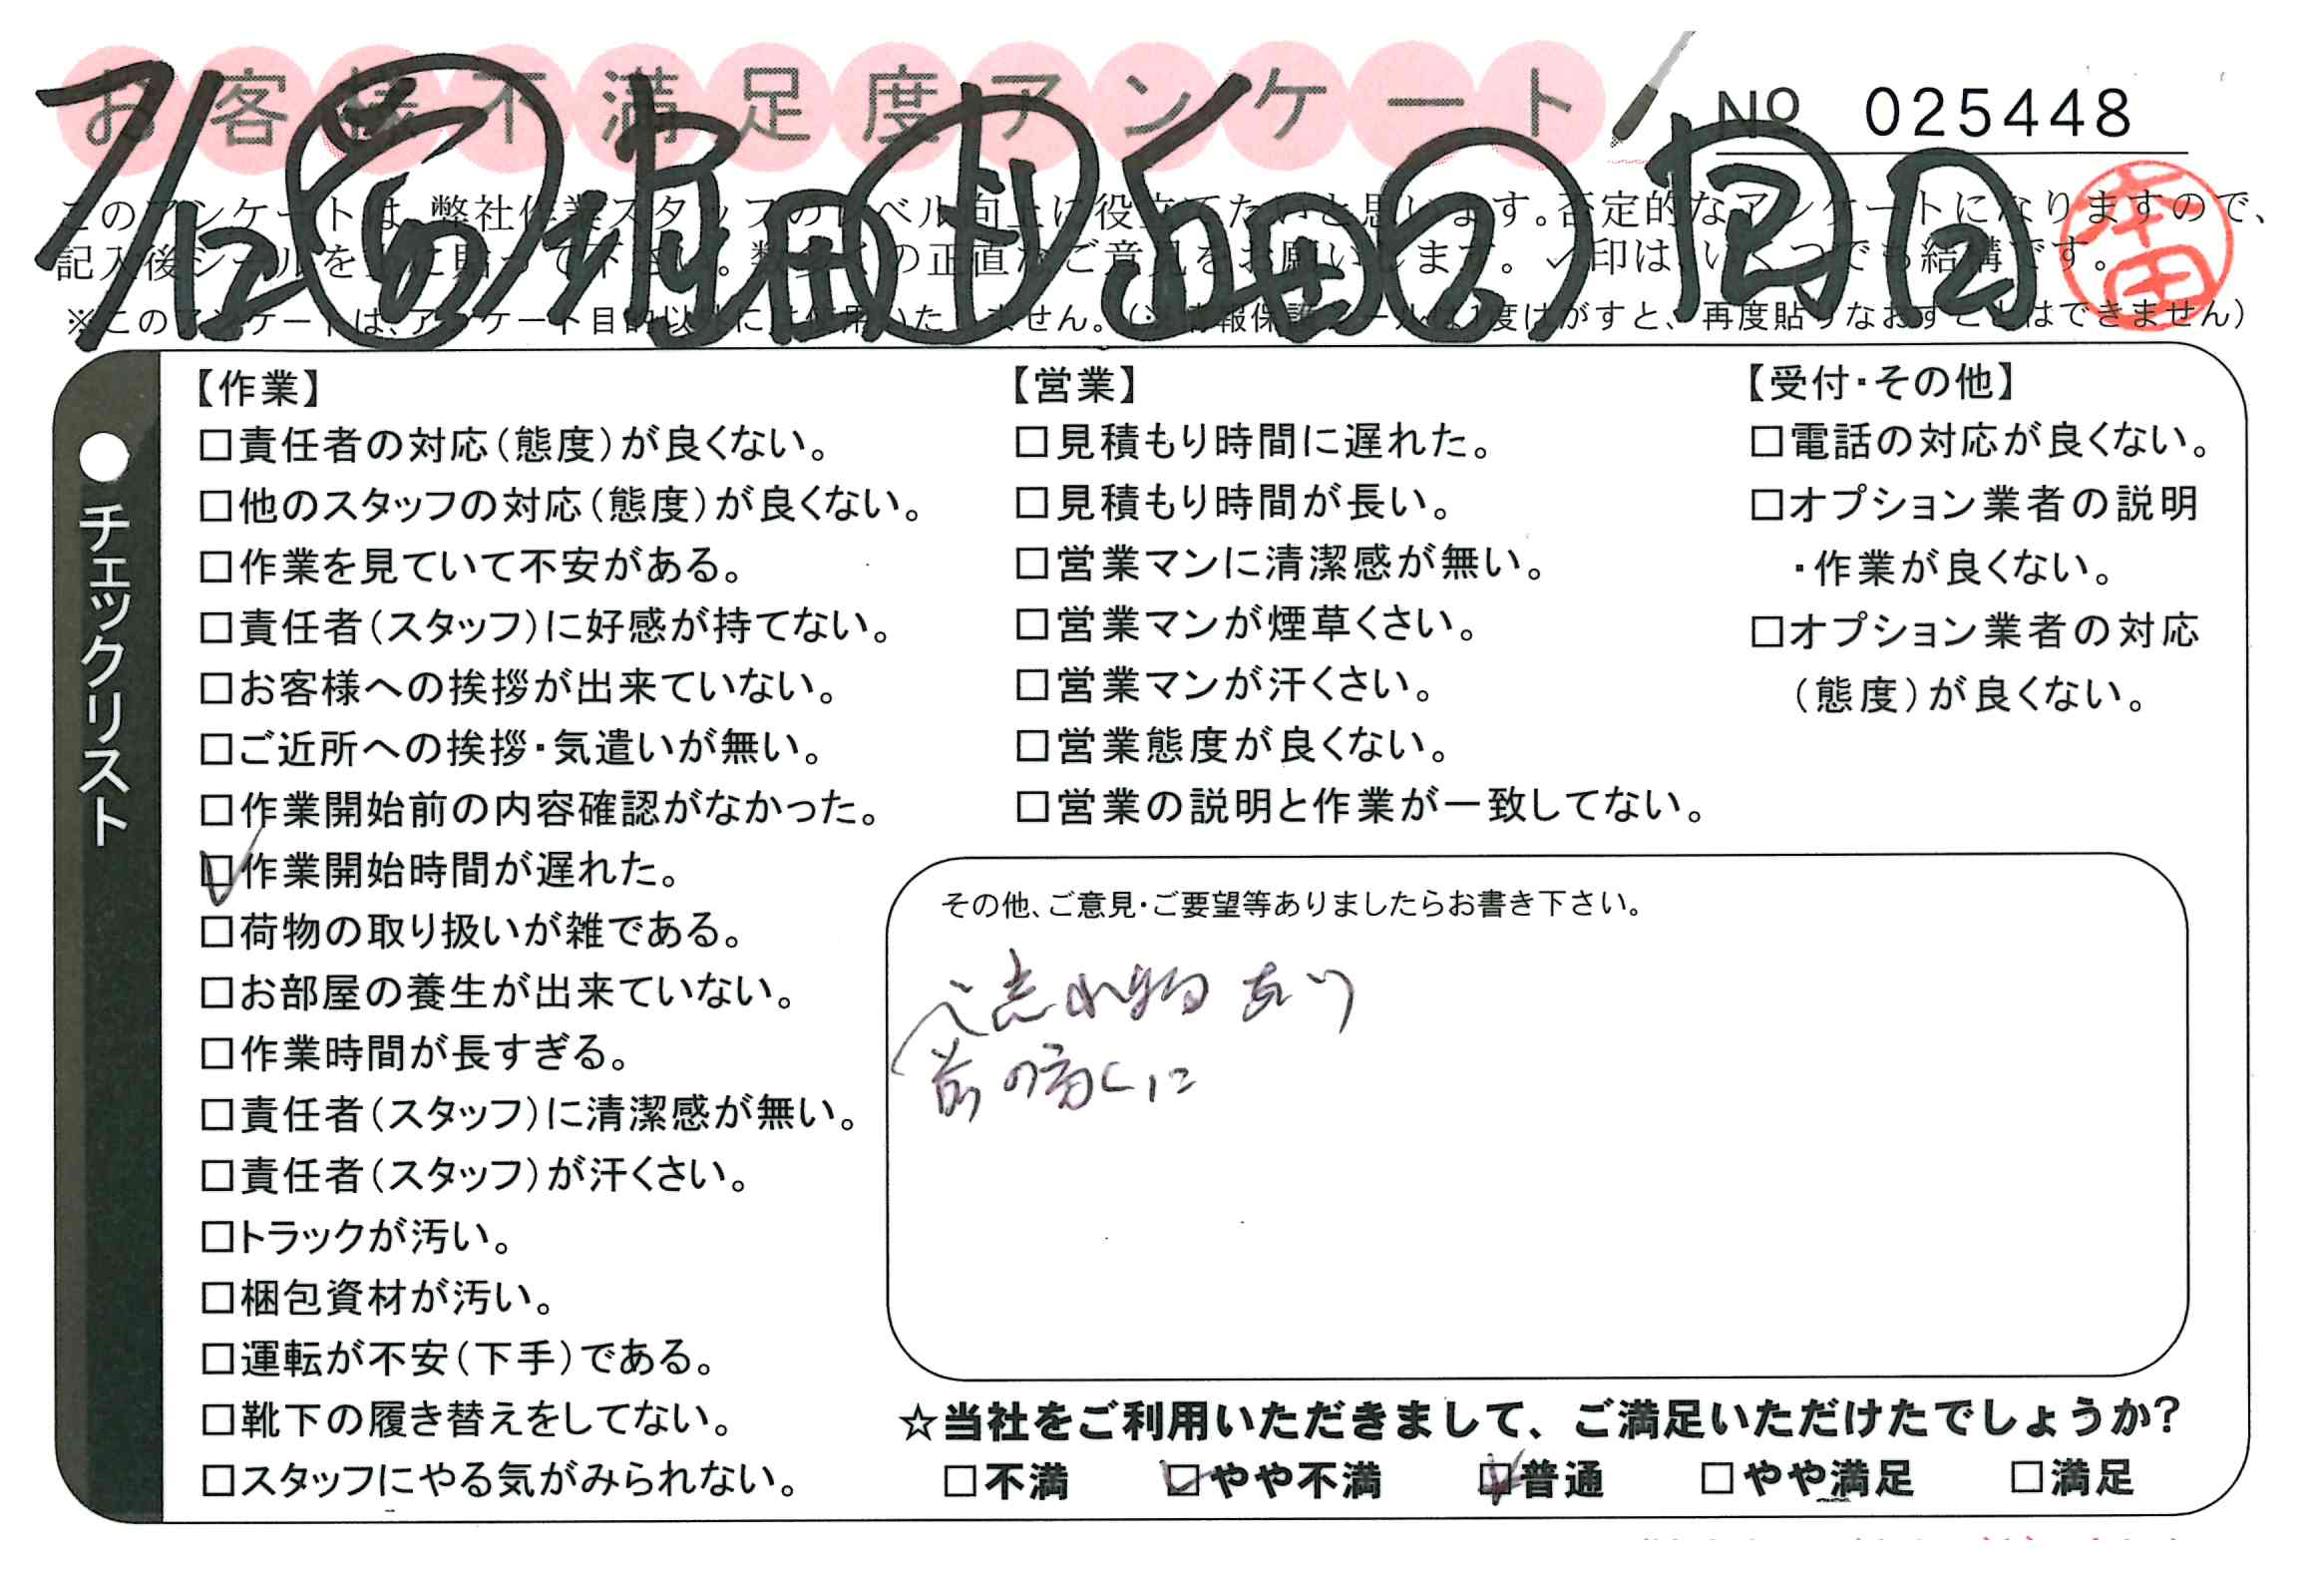 お客様不満足度アンケート
No 025448
7/12
このアンケートは、弊社作業スタッフのレベル向上に役立てたいと思います。否定的なアンケートになりますので、
記入後シールを上に貼って下さい。数多くの正直なご意見をお願いします。✓印は、いくつでも結構です。
※このアンケートは、アンケート目的以外には使用いたしません。(※情報保護シールは1度はがすと、再度貼りなおすことはできません)
●チェックリスト
【作業】
□責任者の対応(態度)が良くない。
□他のスタッフの対応(態度)が良くない。
□作業を見ていて不安がある。
□責任者(スタッフ)に好感が持てない。
□お客様への挨拶が出来ていない。
□ご近所への挨拶・気遣いが無い。
□作業開始前の内容確認がなかった。
☑作業開始時間が遅れた。
□荷物の取り扱いが雑である。
□お部屋の養生が出来ていない。
□作業時間が長すぎる。
□責任者(スタッフ)に清潔感が無い。
□責任者(スタッフ)が汗くさい。
□トラックが汚い。
□梱包資材が汚い。
□運転が不安(下手)である。
□靴下の履き替えをしてない。
□スタッフにやる気がみられない。
【営業】
□見積もり時間に遅れた。
□見積もり時間が長い。
□営業マンに清潔感が無い。
□営業マンが煙草くさい。
□営業マンが汗くさい。
□営業態度が良くない。
□営業の説明と作業が一致してない。
【受付・その他】
□電話の対応が良くない。
□オプション業者の説明
・作業が良くない。
□オプション業者の対応
(態度)が良くない。
その他、ご意見・ご要望等ありましたらお書き下さい。
忘れ物あり
前の方に
☆当社をご利用いただきまして、ご満足いただけたでしょうか?
□不満 ☑やや不満 ☑普通 □やや満足 □満足